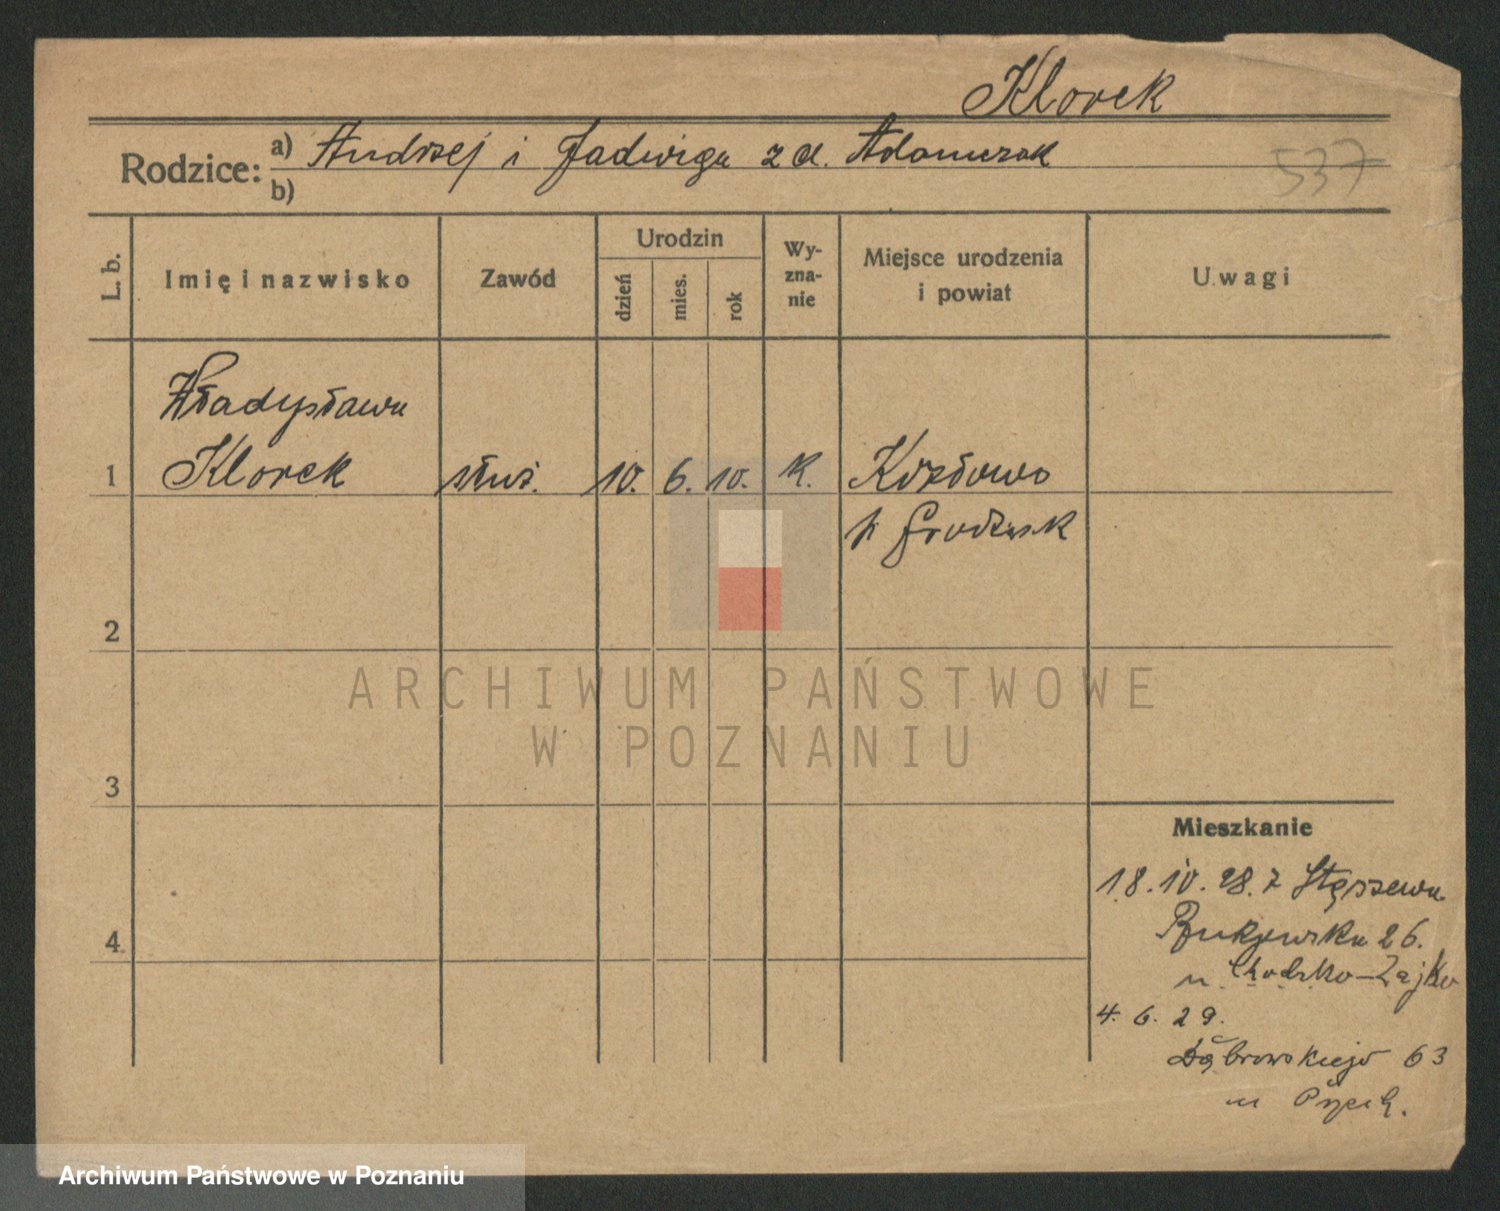 Klorek
Rodzice: a) Andrzej i Jadwiga z d. Adamczak
b)
537
L. b.
Imię i nazwisko
Zawód
Urodzin
dzień
mies.
rok
Wy-
zna-
nie
Miejsce urodzenia
i powiat
Uwagi
Władysława
1 Klorek służ. 10. 6. 10. k. Kozłowo
Grodzisk
2
ARCHIWUM PAŃSTWOWE
W POZNANIU
3
Mieszkanie
18. 10. 28. z Stęszewa
Bukowska 26.
4
4. 6. 29.
Dąbrowskiego 63
Archiwum Państwowe w Poznaniu